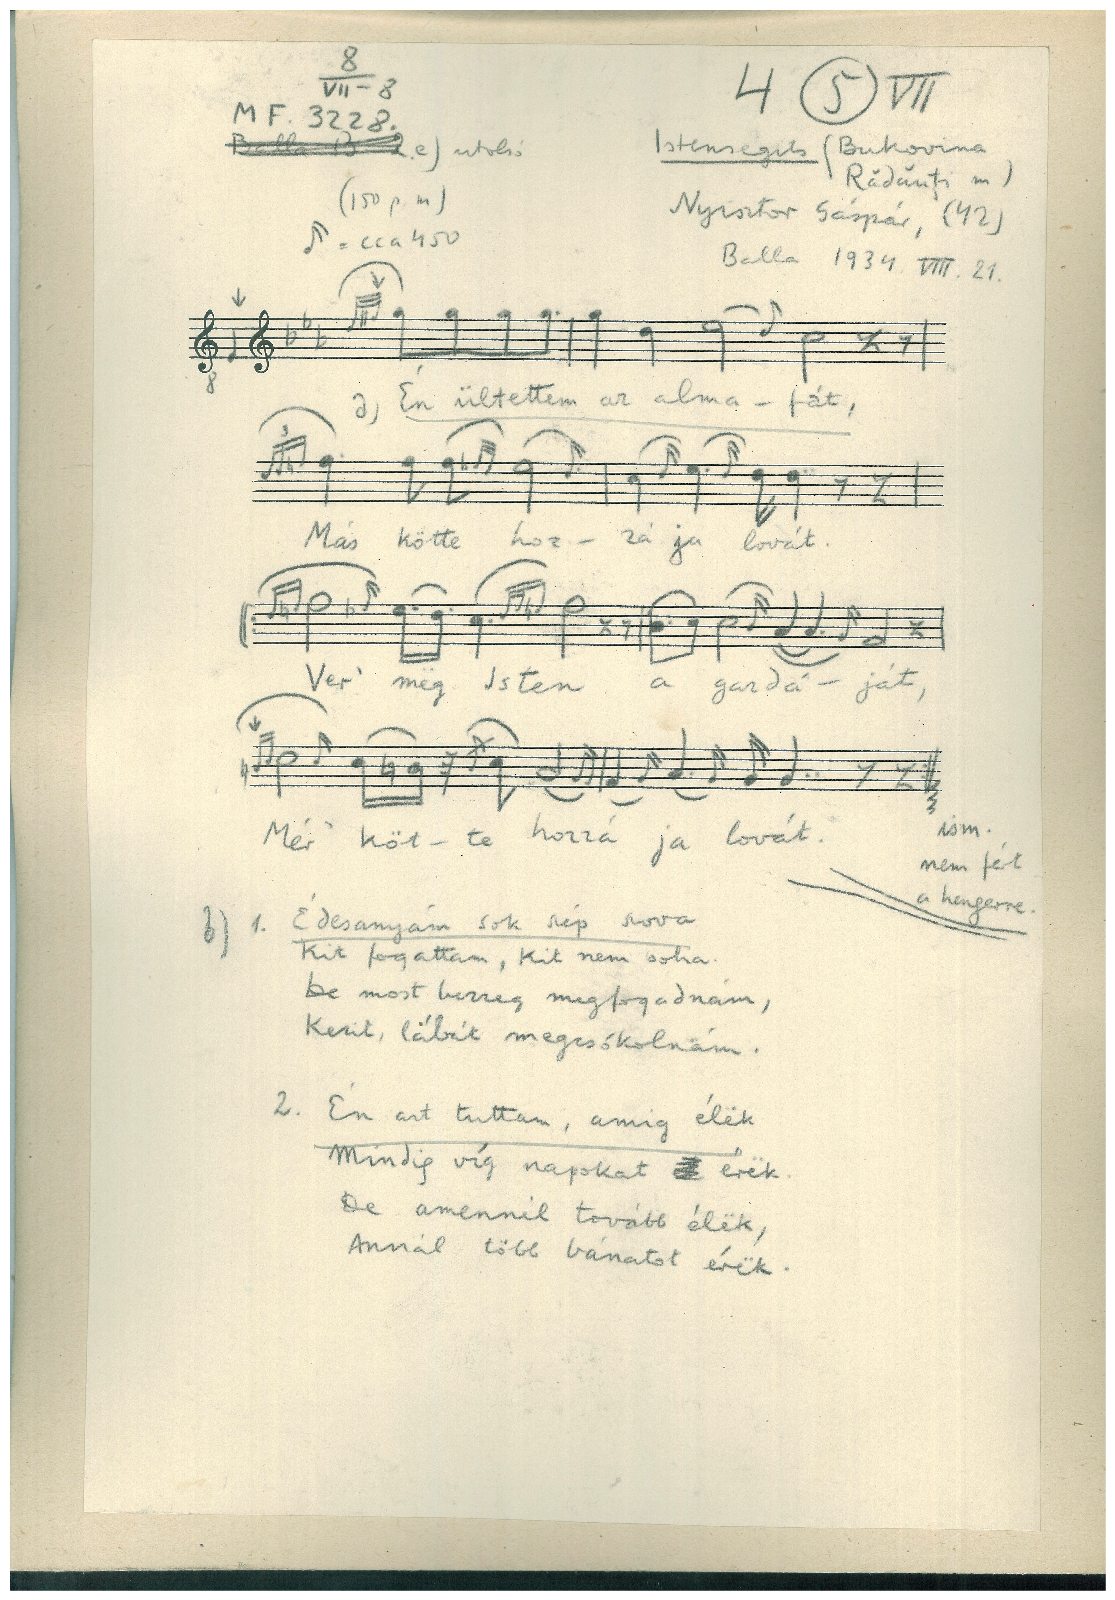 8
VII-8
MF. 3228.
2.e) utolsó
(150 p. m)
= cca 450
4 (5) VII
Istensegits (Bukovina
Rădăuţi m)
Nyisztor Gáspár, (42)
Balla 1934. VIII. 21.
8
a) Én ültettem az alma - fát,
3
Más kötte hoz - zá ja lovát.
Ver' mëg Isten a gazdá - ját,
Mér' köt - te hozzá ja lovát.
ism.
nem fért
a hengerre.
b) 1. Édesanyám sok szép szova
Kit fogattam, kit nem soha.
De most bezzeg megfogadnám,
Kezit, lábát megcsókolnám.
2. Én azt tuttam, amig élëk
Mindig víg napokat érëk.
De amennél tovább élëk,
Annál több bánatot érëk.